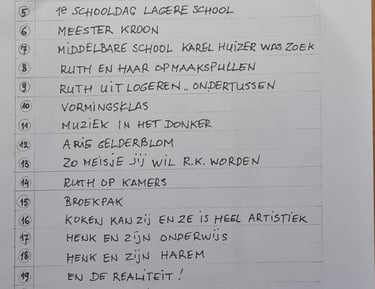 5 1e SCHOOLDAG LAGERE SCHOOL
6 MEESTER KROON
7 MIDDELBARE SCHOOL KAREL HUIZER WAS ZOEK
8 RUTH EN HAAR OPMAAKSPULLEN
9 RUTH UIT LOGEREN.. ONDERTUSSEN
10 VORMINGSKLAS
11 MUZIEK IN HET DONKER
12 ARIE GELDERBLOM
13 ZO MEISJE JIJ WIL R.K. WORDEN
14 RUTH OP KAMERS
15 BROEKPAK
16 KOKEN KAN ZIJ EN ZE IS HEEL ARTISTIEK
17 HENK EN ZIJN ONDERWIJS
18 HENK EN ZIJN HAREM
19 EN DE REALITEIT!